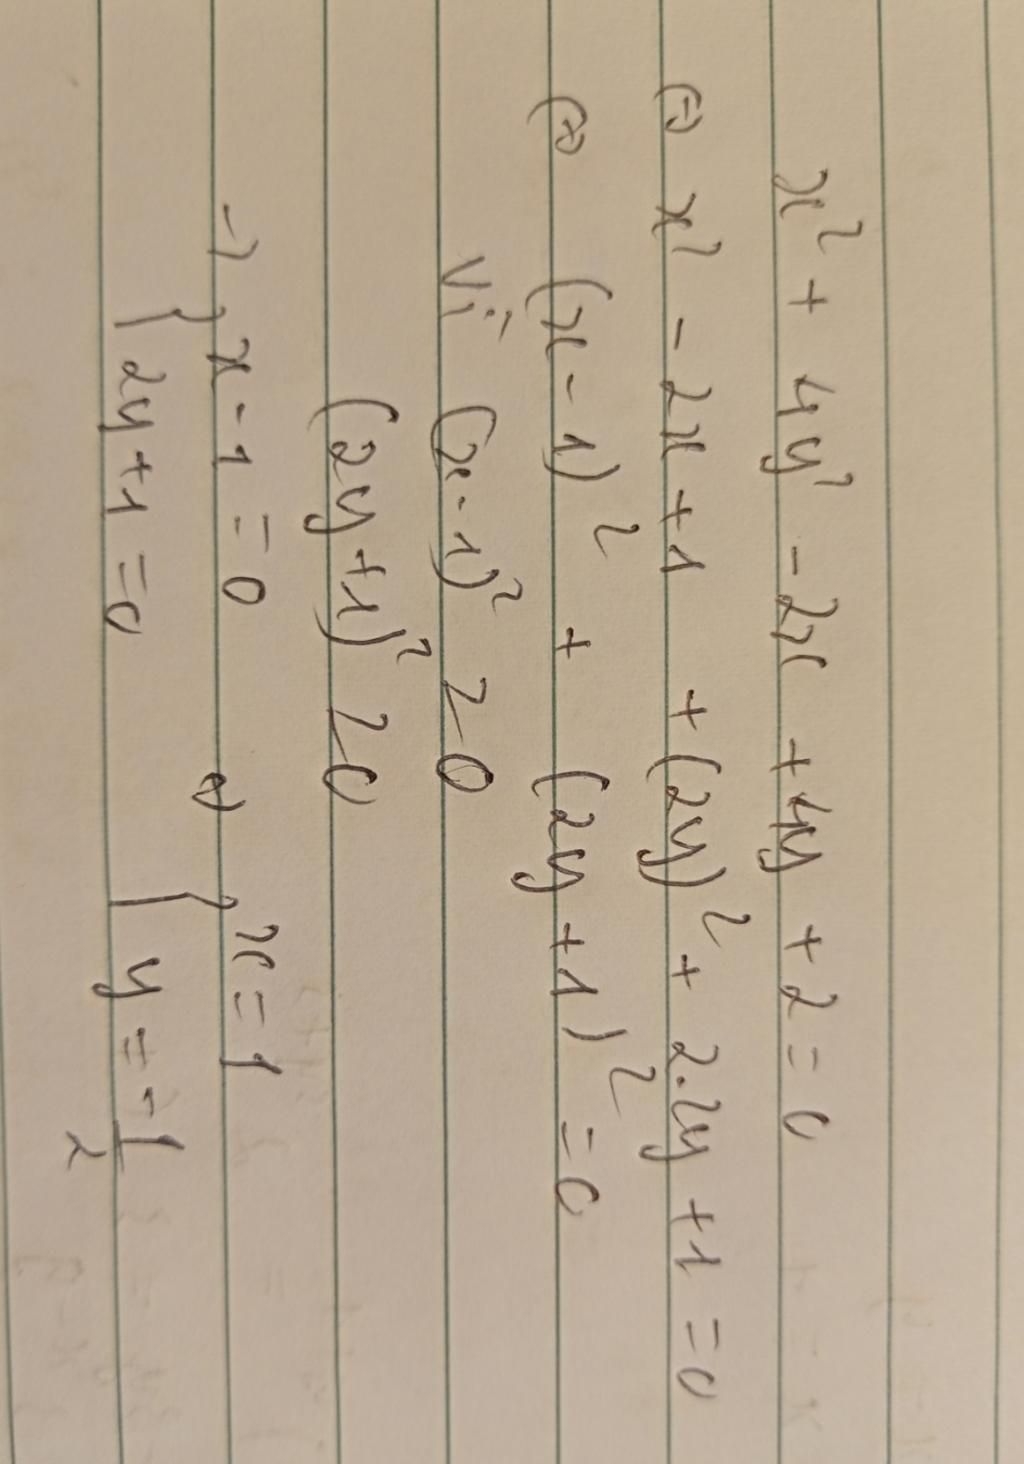 x² + 4y² - 2x + 4y + 2 = 0
⇔ x² - 2x + 1 + (2y)² + 2.2y + 1 = 0
⇔ (x - 1)² + (2y + 1)² = 0
Vì (x - 1)² ≥ 0
(2y + 1)² ≥ 0
→ { x - 1 = 0 ⇔ { x = 1
2y + 1 = 0 y = -1/2